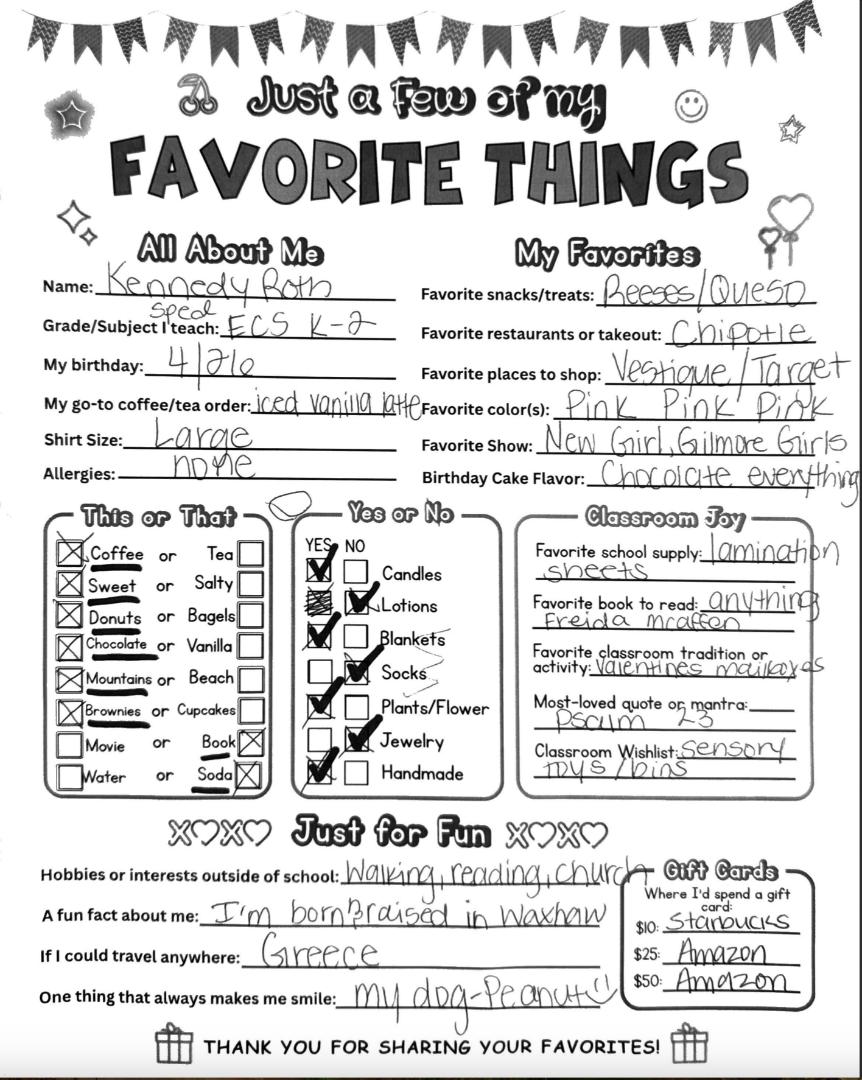 Just a Few of my
FAVORITE THINGS
All About Me
Name: Kennedy Roth
Grade/Subject I teach: sped ECS K-2
My birthday: 4/26
My go-to coffee/tea order: iced vanilla latte
Shirt Size: Large
Allergies: none
My Favorites
Favorite snacks/treats: Reeses/Queso
Favorite restaurants or takeout: Chipotle
Favorite places to shop: Vestique/Target
Favorite color(s): Pink Pink Pink
Favorite Show: New Girl, Gilmore Girls
Birthday Cake Flavor: Chocolate everything
This or That
Coffee or Tea
Sweet or Salty
Donuts or Bagels
Chocolate or Vanilla
Mountains or Beach
Brownies or Cupcakes
Movie or Book
Water or Soda
Yes or No
YES NO
Candles
Lotions
Blankets
Socks
Plants/Flower
Jewelry
Handmade
Classroom Joy
Favorite school supply: lamination
sheets
Favorite book to read: anything
Freida mcaffen
Favorite classroom tradition or
activity: Valentines mailboxes
Most-loved quote or mantra:
Psalm 23
Classroom Wishlist: Sensory
toys/bins
XOXO Just for Fun XOXO
Hobbies or interests outside of school: Walking, reading, church
A fun fact about me: I'm born & raised in Waxhaw
If I could travel anywhere: Greece
One thing that always makes me smile: my dog-Peanut :)
Gift Cards
Where I'd spend a gift
card:
$10: Starbucks
$25: Amazon
$50: Amazon
THANK YOU FOR SHARING YOUR FAVORITES!